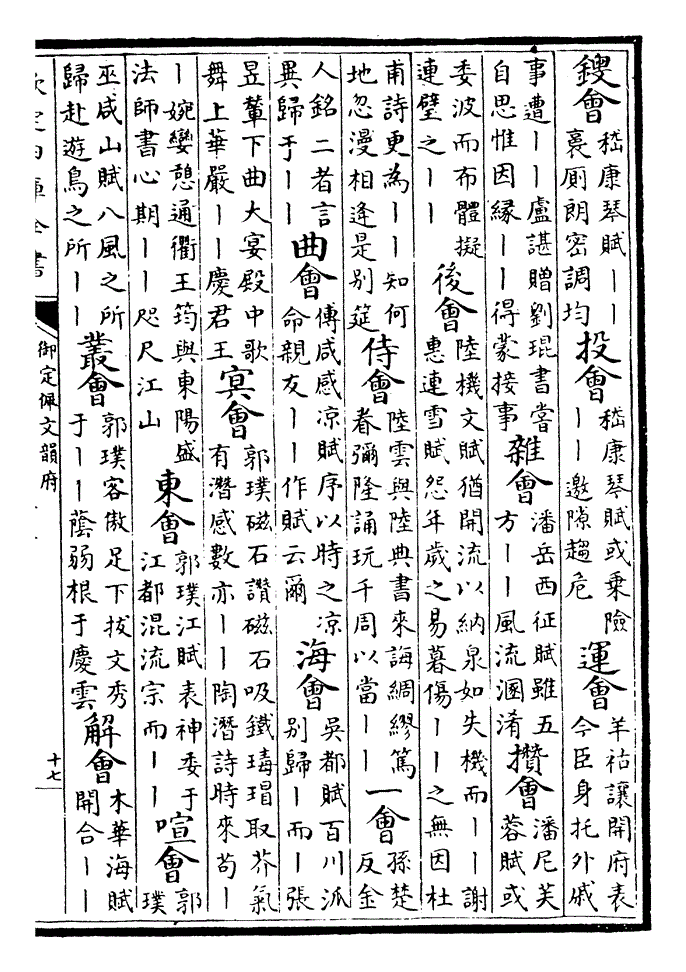 鎪會嵇康琴賦丨丨裛厠朗密調均投會嵇康琴賦或乘險丨丨邀隙趨危運會羊祜讓開府表今臣身托外戚
事遭丨丨盧諶贈劉琨書嘗自思惟因緣丨丨得蒙接事雜會潘岳西征賦雖五方丨丨風流溷淆攢會潘尼芙蓉賦或
委波而布體擬連璧之丨丨後會陸機文賦猶開流以納泉如失機而丨丨謝惠連雪賦怨年歲之易暮傷丨丨之無因杜
甫詩更為丨丨知何地忽漫相逢是別筵侍會陸雲與陸典書來誨綢繆篤眷彌隆誦玩千周以當丨丨一會孫楚反金
人銘二者言異歸于丨丨曲會傅咸感凉賦序以時之凉命親友丨丨作賦云爾海會吳都賦百川派别歸丨而丨張
昱輦下曲大宴殿中歌舞上華嚴丨丨慶君王冥會郭璞磁石讚磁石吸鐵瑇瑁取芥氣有潛感數亦丨丨陶潛詩時來苟丨
丨婉孌憩通衢王筠與東陽盛法師書心期丨丨咫尺江山東會郭璞江賦表神委于江都混流宗而丨丨喧會郭璞
巫咸山賦八風之所歸赴遊鳥之所丨丨叢會郭璞客傲足下拔文秀于丨丨蔭弱根于慶雲解會木華海賦開合丨丨
欽定四庫全書
御定佩文韻府
十七